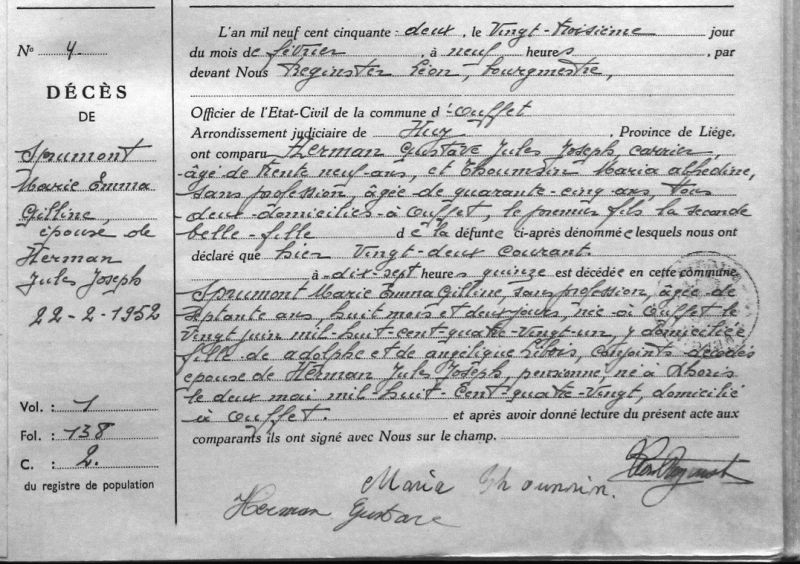 No 4
DÉCÈS
DE
Sprumont
Marie Emma
Gilline,
épouse de
Herman
Jules Joseph
22-2-1952
Vol. : 1
Fol. : 138
C. : 2.
du registre de population
L'an mil neuf cent cinquante-deux, le Vingt-troisième jour
du mois de février, à neuf heures, par
devant Nous Reginster Léon, bourgmestre,
Officier de l'Etat-Civil de la commune d'Ouffet
Arrondissement judiciaire de Huy, Province de Liége.
ont comparu Herman Gustave Jules Joseph carrier,
âgé de trente neuf ans, et Thoumsin Maria Alfredine,
sans profession, âgée de quarante-cinq ans, tous
deux domiciliés à Ouffet, le premier fils la seconde
belle-fille de la défunte ci-après dénommée lesquels nous ont
déclaré que hier Vingt-deux courant.
à dix-sept heures quinze est décédée en cette commune
Sprumont Marie Emma Gilline, sans profession, âgée de
septante ans, huit mois et deux jours, née à Ouffet le
Vingt juin mil-huit-cent-quatre-vingt-un, y domiciliée
fille de Adolphe et de Angélique Libois, conjoints décédés
épouse de Herman Jules Joseph, pensionné, né à
le deux mai mil-huit-cent-quatre-vingt, domicilié
à Ouffet. et après avoir donné lecture du présent acte aux
comparants ils ont signé avec Nous sur le champ.
Maria Thoumsin.
Herman Gustave